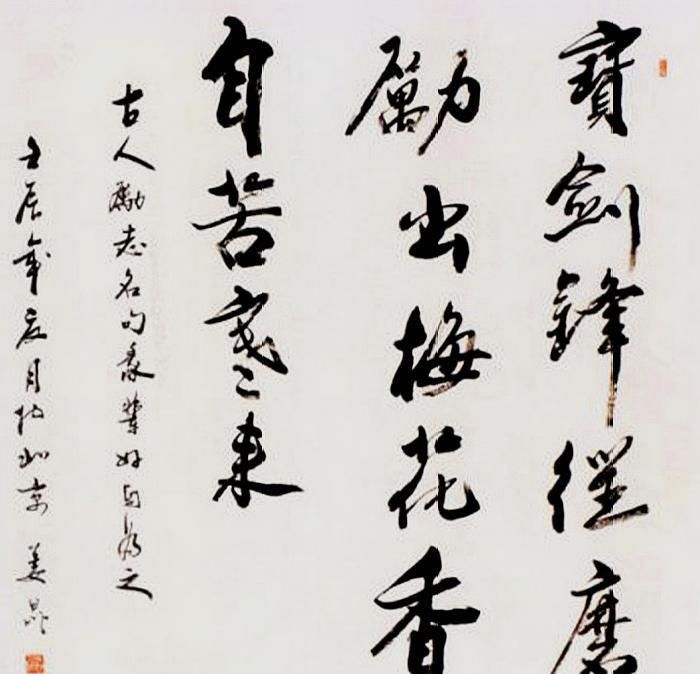 寶劍鋒從磨
勵出梅花香
自苦寒來
古人勵志名句輩好自為之
壬辰年月於北京 姜昆